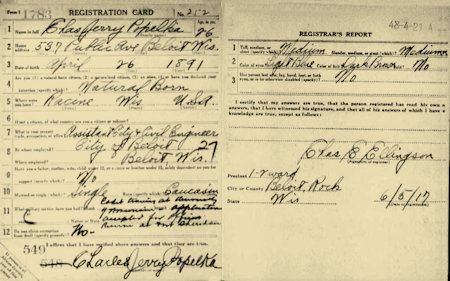 1783
REGISTRATION CARD
No. 212
1 Name in full Chas Jerry Popelka Age, in yrs. 26
2 Home address 537 Public Ave Beloit Wis.
3 Date of birth April 26 1891
4 Are you (1) a natural-born citizen, (2) a naturalized citizen, (3) an alien, (4) or have you declared your
intention (specify which)? Natural Born
5 Where were you born? Racine Wis U.S.A.
6 If not a citizen, of what country are you a citizen or subject?
7 What is your present trade, occupation, or office? Assistant City & Civil Engineer
8 By whom employed? City of Beloit 27
Where employed? Beloit, Wis.
9 Have you a father, mother, wife, child under 12, or a sister or brother under 12, solely dependent on you for
support (specify which)? No
10 Married or single (which)? Single Race (specify which)? Caucasian
11 What military service have you had?
12 Do you claim exemption from draft (specify grounds)? No-
I affirm that I have verified above answers and that they are true.
549
548
Charles Jerry Popelka
48-4-21 A
REGISTRAR'S REPORT
1 Tall, medium, or short (specify which)? Medium Slender, medium, or stout (which)? Medium
2 Color of eyes? Light Blue Color of hair? Dark Brown Bald? No
3 Has person lost arm, leg, hand, foot, or both eyes, or is he otherwise disabled (specify)? No
I certify that my answers are true, that the person registered has read his own
answers, that I have witnessed his signature, and that all of his answers of which I have
knowledge are true, except as follows:
Chas E Ellingson
(Signature of registrar)
Precinct 1st ward
City or County Beloit, Rock
State Wis 6/5/17